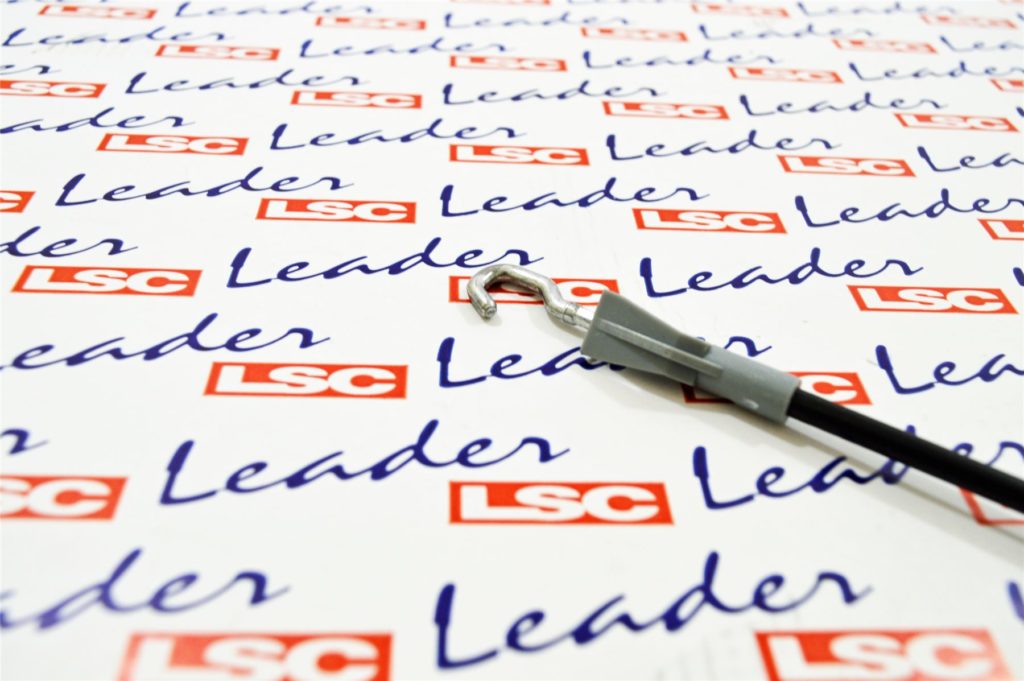 LSC Leader LSC Leader
Leader LSC Leader LSC Leader LSC
Leader LSC Leader LSC Leader
LSC Leader LSC Leader LSC Leader
LSC Leader LSC Leader LSC
LSC Leader LSC Leader LSC
Leader LSC Leader LSC
LSC Leader LSC Leader
LSC Leader LSC Leader LSC
Leader LSC Leader LSC
LSC Leader LSC Leader
LSC Leader LSC